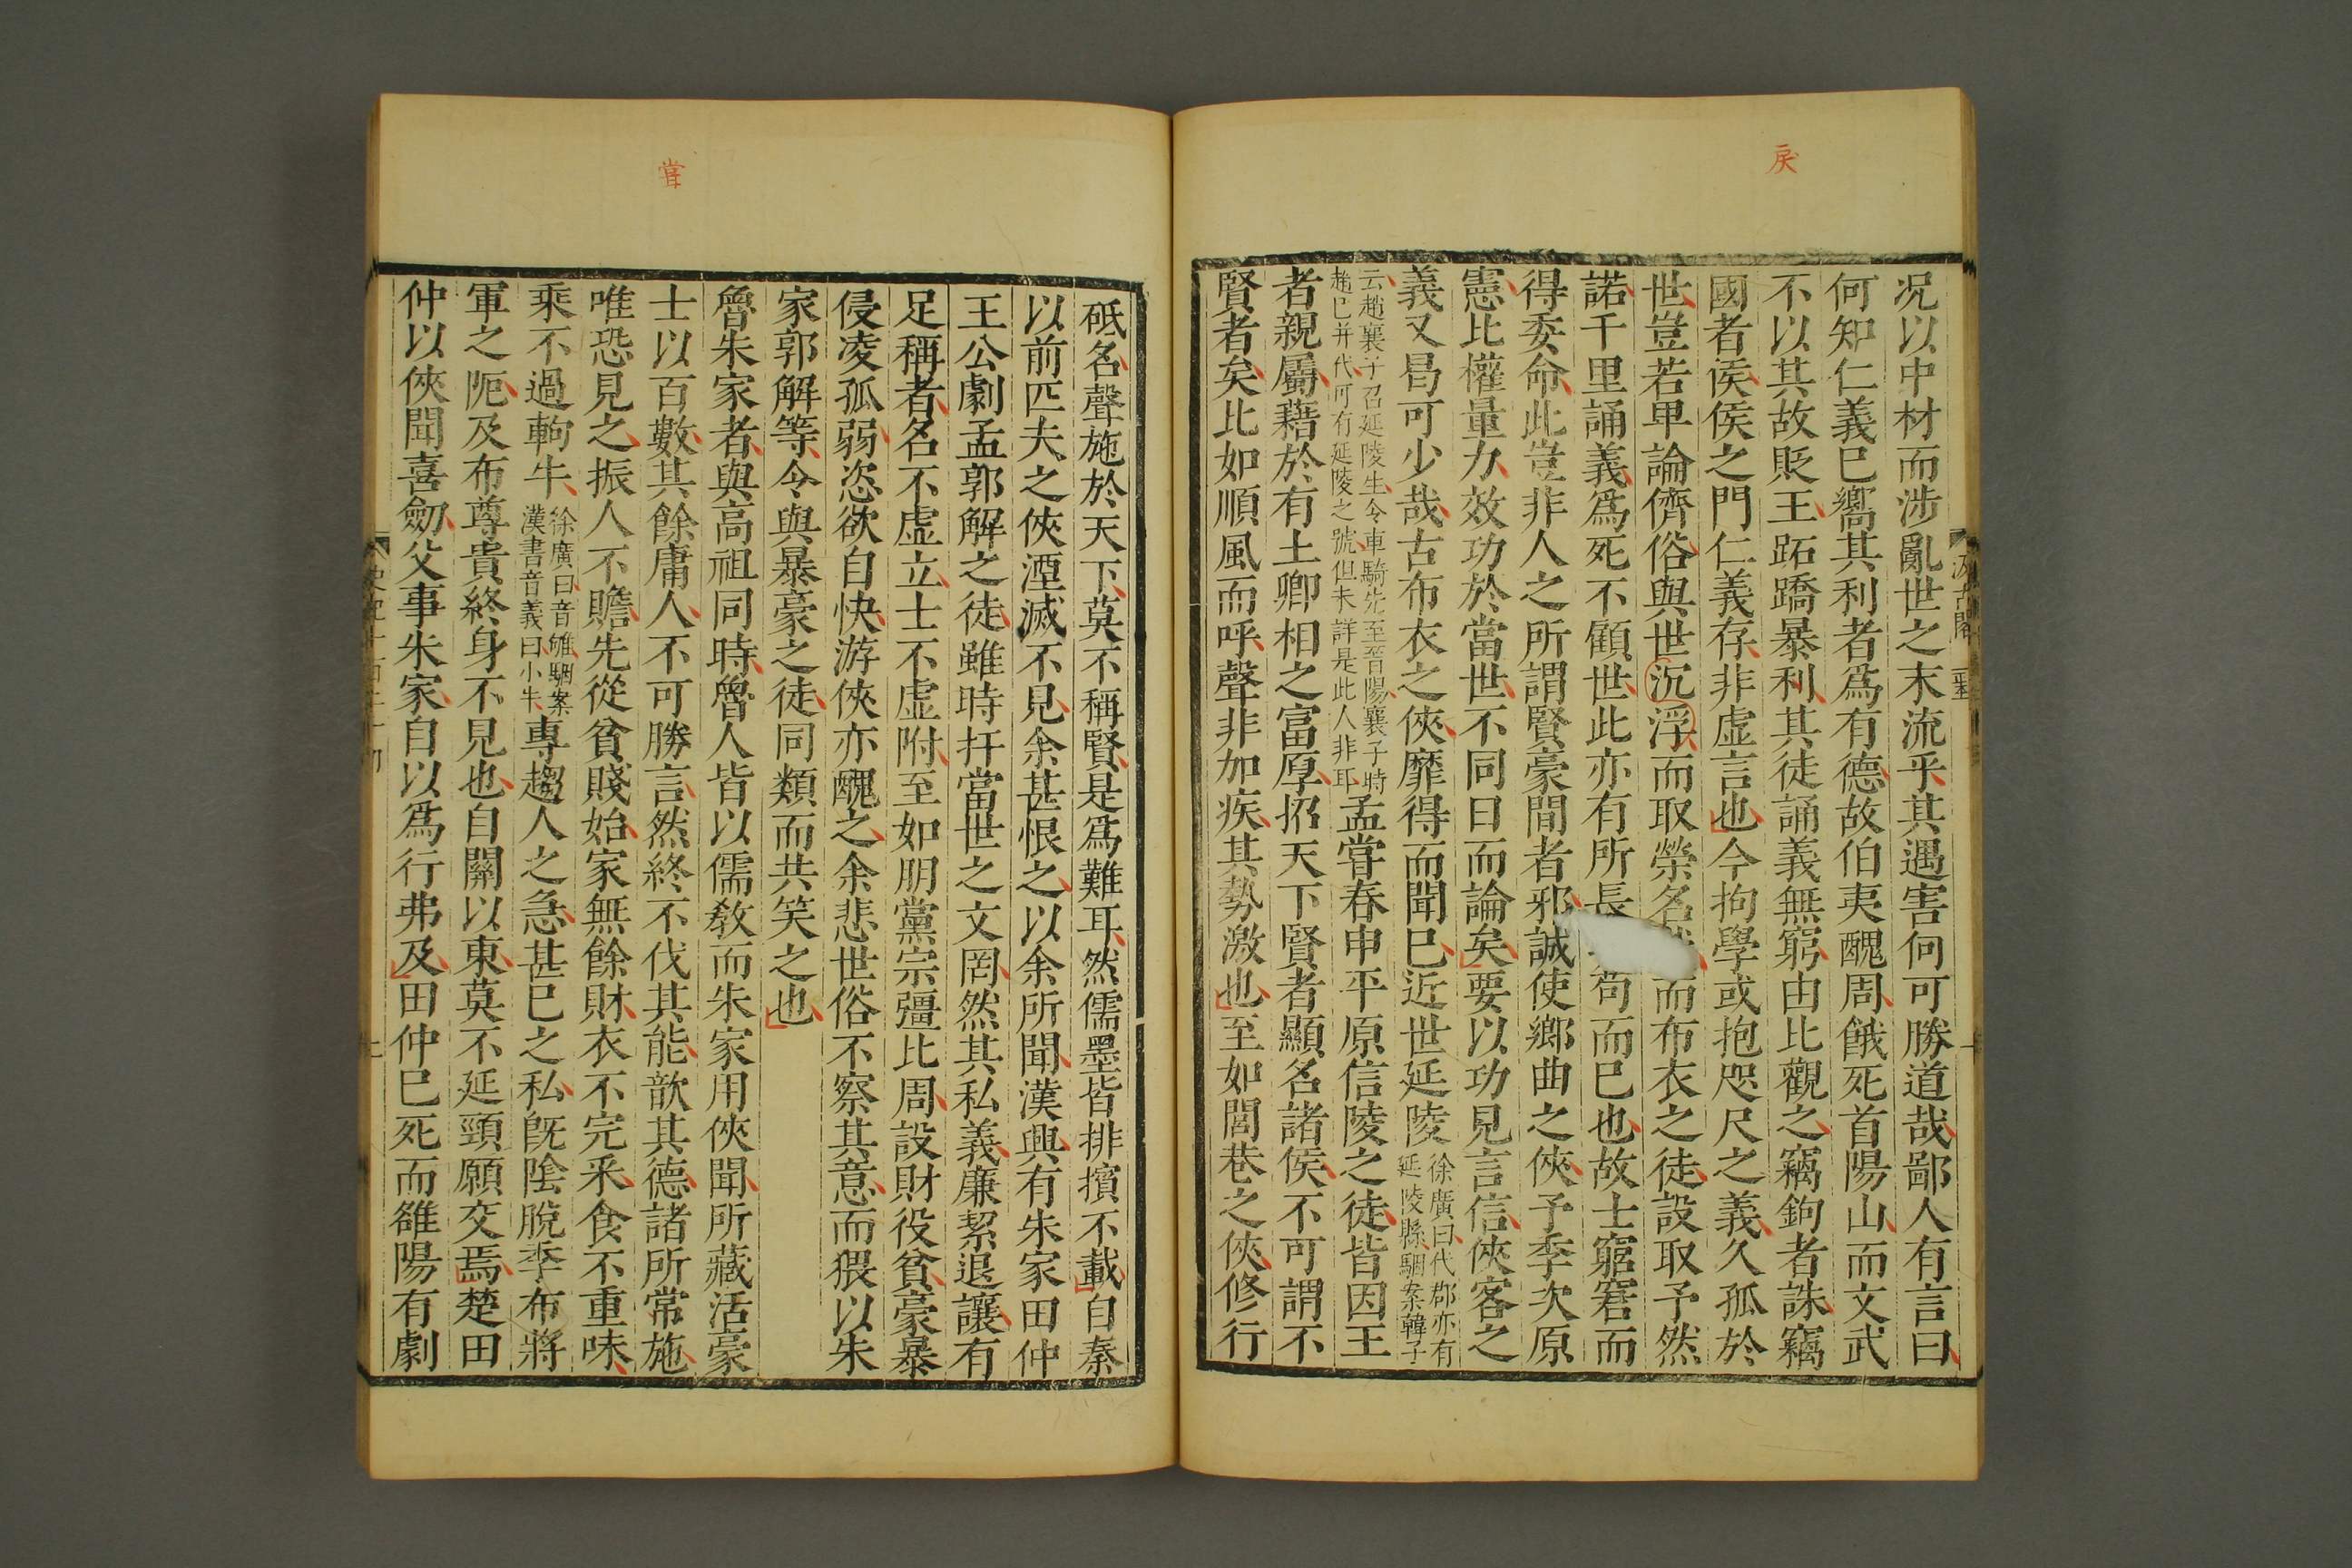 戾
况以中材而涉亂世之末流乎其遇害何可勝道哉鄙人有言曰
何知仁義巳嚮其利者爲有德故伯夷醜周餓死首陽山而文武
不以其故貶王跖蹻暴利其徒誦義無窮由此觀之竊鉤者誅竊
國者侯侯之門仁義存非虛言也今拘學或抱咫尺之義久孤於
世豈若卑論儕俗與世沉浮而取榮名 而布衣之徒設取予然
諾千里誦義爲死不顧世此亦有所長 苟而巳也故士窮窘而
得委命此豈非人之所謂賢豪間者邪誠使鄉曲之俠予季次原
憲比權量力效功於當世不同日而論矣要以功見言信俠客之
義又曷可少哉古布衣之俠靡得而聞巳近世延陵徐廣曰代郡亦有延陵縣駰案韓子
云趙襄子召延陵生令車騎先至晉陽襄子時趙巳并代可有延陵之號但未詳是此人非耳孟嘗春申平原信陵之徒皆因王
者親屬藉於有土卿相之富厚招天下賢者顯名諸侯不可謂不
賢者矣比如順風而呼聲非加疾其勢激也至如閭巷之俠修行
汲古閣
嘗
砥名聲施於天下莫不稱賢是爲難耳然儒墨皆排擯不載自秦
以前匹夫之俠湮滅不見余甚恨之以余所聞漢興有朱家田仲
王公劇孟郭解之徒雖時扞當世之文罔然其私義廉絜退讓有
足稱者名不虛立士不虛附至如朋黨宗彊比周設財役貧豪暴
侵凌孤弱恣欲自快游俠亦醜之余悲世俗不察其意而猥以朱
家郭解等令與暴豪之徒同類而共笑之也
魯朱家者與高祖同時魯人皆以儒敎而朱家用俠聞所藏活豪
士以百數其餘庸人不可勝言然終不伐其能歆其德諸所常施
唯恐見之振人不贍先從貧賤始家無餘財衣不完采食不重味
乘不過軥牛徐廣曰音雊駰案漢書音義曰小牛專趨人之急甚巳之私旣陰脫季布將
軍之阨及布尊貴終身不見也自關以東莫不延頸願交焉楚田
仲以俠聞喜劒父事朱家自以爲行弗及田仲巳死而雒陽有劇